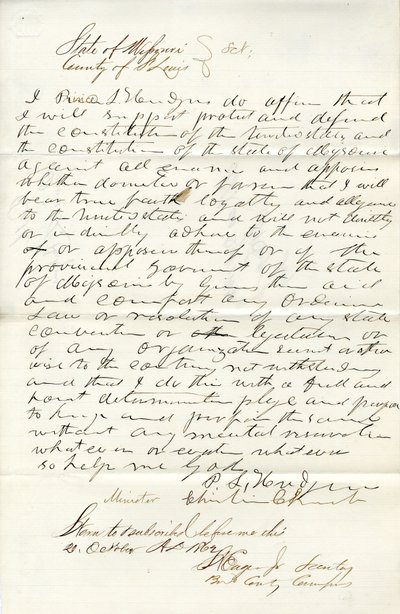 State of Missouri } Sct.
County of St Louis
I S. Hendges do affirm that
I will support protect and defend
the constitution of the United states and
the constitution of the state of Missouri
against all enemies and opposers
whether domestic or foreign that I will
bear true faith loyalty and allegiance
to the United states and will not directly
or indirectly adhere to the enemies
or or opposers thereof or of the
provincial Government of the state
of Missouri by giving them aid
and comfort any Ordinance
Law or resolution of any state
convention or legislature or
of any organization secret or other
wise to the contrary not withstanding
and that I do this with a full and
honest determination pledge and purpose
to keep and perform the same
without any mental reservation
whatever or evasion whatever
so help me God
P. S. Hendges
Minister Christian Church
Sworn to & subscribed before me this
20 October AD 1862
Secretary
Bd County